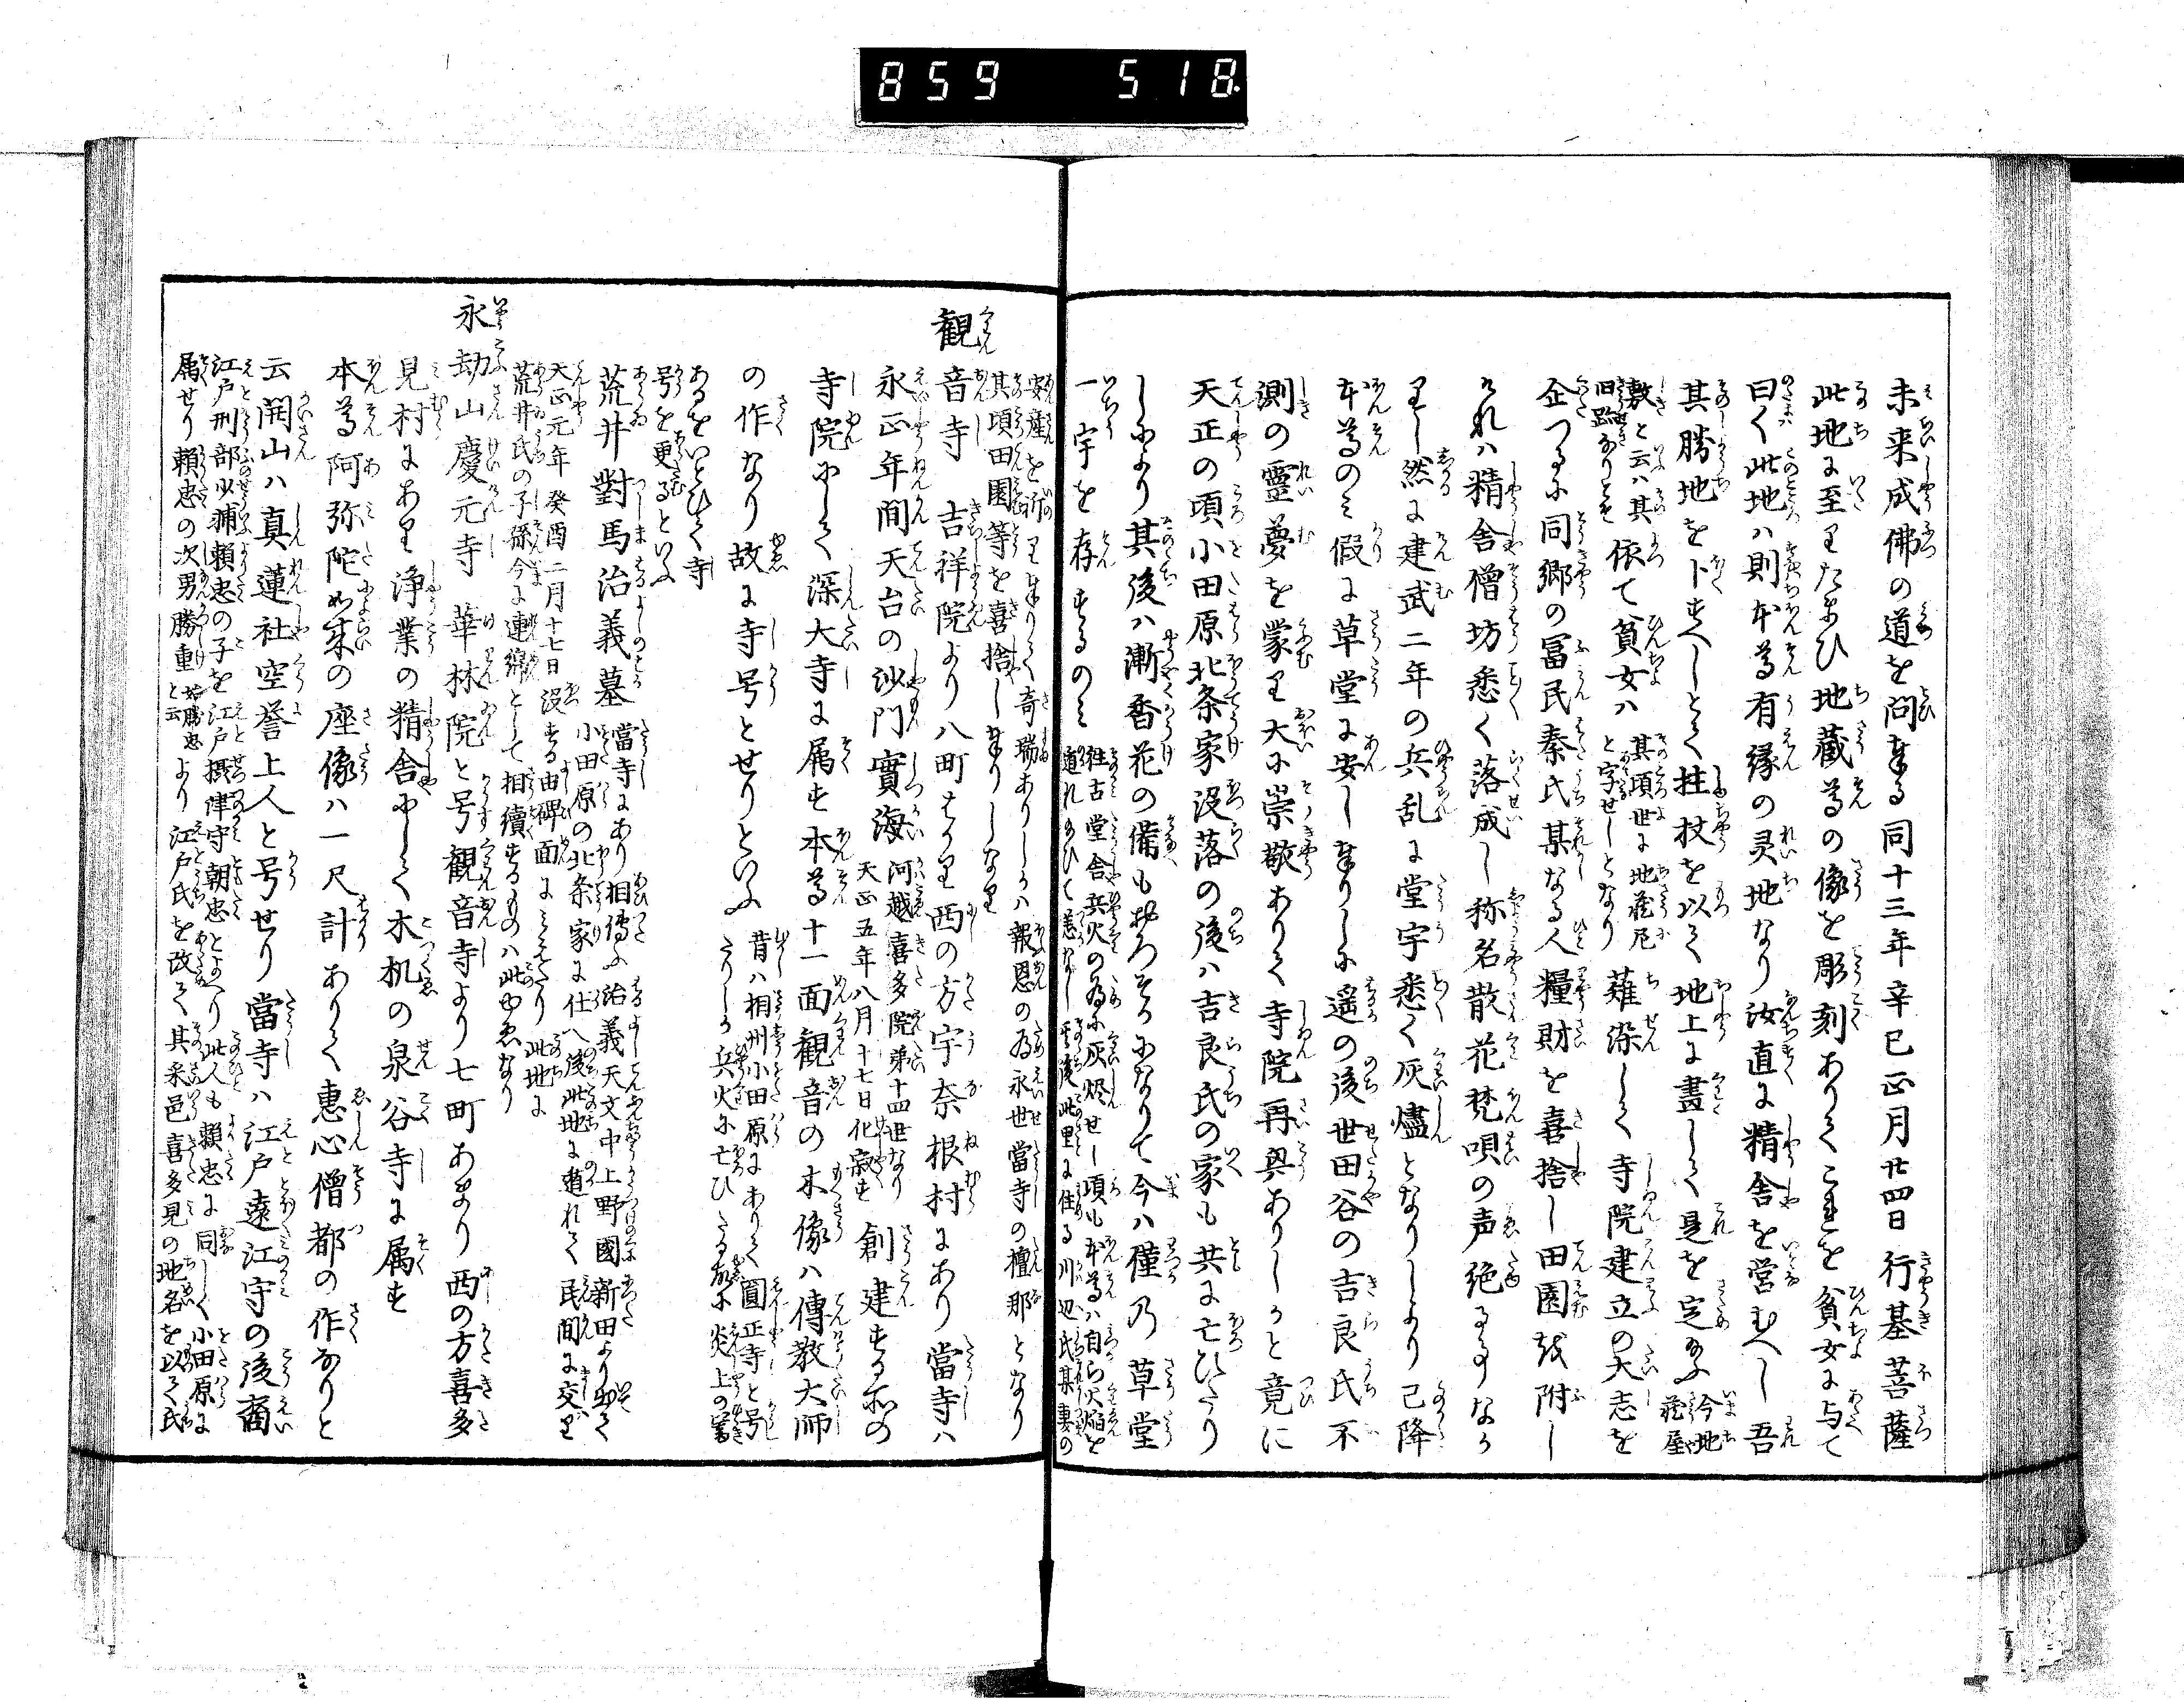 859 518
未来成佛の道を問奉る同十三年辛巳正月廿四日行基菩薩
此地に至りたまひ地蔵尊の像を彫刻ありてこれを貧女に与て
曰く此地ハ則本尊有縁の灵地なり汝直に精舎を営むへし吾
其勝地を卜すへしとて拄杖を以て地上に畫して是を定給ふ 今地蔵屋
敷と云ハ其旧跡なりとそ 依て貧女ハ 其頃世に地蔵尼と字せしとなり 薙染して寺院建立の大志を
企つるに同郷の冨民秦氏某なる人糧財を喜捨し田園を附し
けれハ精舎僧坊悉く落成し称名散花梵唄の声絶るゝ事なか
りし然に建武二年の兵乱に堂宇悉く灰燼となりしより已降
本尊のミ假に草堂に安し奉りしに遥の後世田谷の吉良氏不
測の霊夢を蒙り大に崇敬ありて寺院再興ありしかと竟に
天正の頃小田原北条家没落の後ハ吉良氏の家も共に亡ひたり
しより其後ハ漸香花の備もおろそかになりて今ハ僅乃草堂
一宇を存するのミ 往古堂舎兵火の為に灰燼せし頃も本尊ハ自ら火焔を
遁れ給ひて恙なし其後此里に住る川辺氏某妻の
安産を祈り奉りて奇瑞ありしかハ報恩の為永世當寺の檀那となり
其頃田園等を喜捨し奉りしなり
観音寺 吉祥院より八町はかり西の方宇奈根村にあり當寺ハ
永正年間天台の沙門實海 河越喜多院第十四世なり
天正五年八月十七日化寂す 創建する所の
寺院にして深大寺に属す本尊十一面観音の木像ハ傳教大師
の作なり故に寺号とせりといふ 昔ハ相州小田原にありて圓正寺と号
たりしか兵火に亡ひたる故に炎上の響
あるをいとひて寺
号を更るといふ
荒井對馬治義墓 當寺にあり相傳ふ治義天文中上野國新田より出て
小田原の北条家に仕へ後此地に遁れて民間に交り
天正元年癸酉二月十七日没する由碑面にミえたり此地に
荒井氏の子孫今に連綿として相續するものハ此ゆゑなり
永劫山慶元寺 華林院と号観音寺より七町あまり西の方喜多
見村にあり浄業の精舎にして木机の泉谷寺に属す
本尊阿弥陀如来の座像ハ一尺計ありて恵心僧都の作なりと
云開山ハ真蓮社空誉上人と号せり當寺ハ江戸遠江守の後裔
江戸刑部少輔頼忠の子を江戸摂津守朝忠といへり此人も頼忠に同しく小田原に
属せり頼忠の次男勝重 若勝忠と云 より江戸氏を改て其采邑喜多見の地名を以て氏